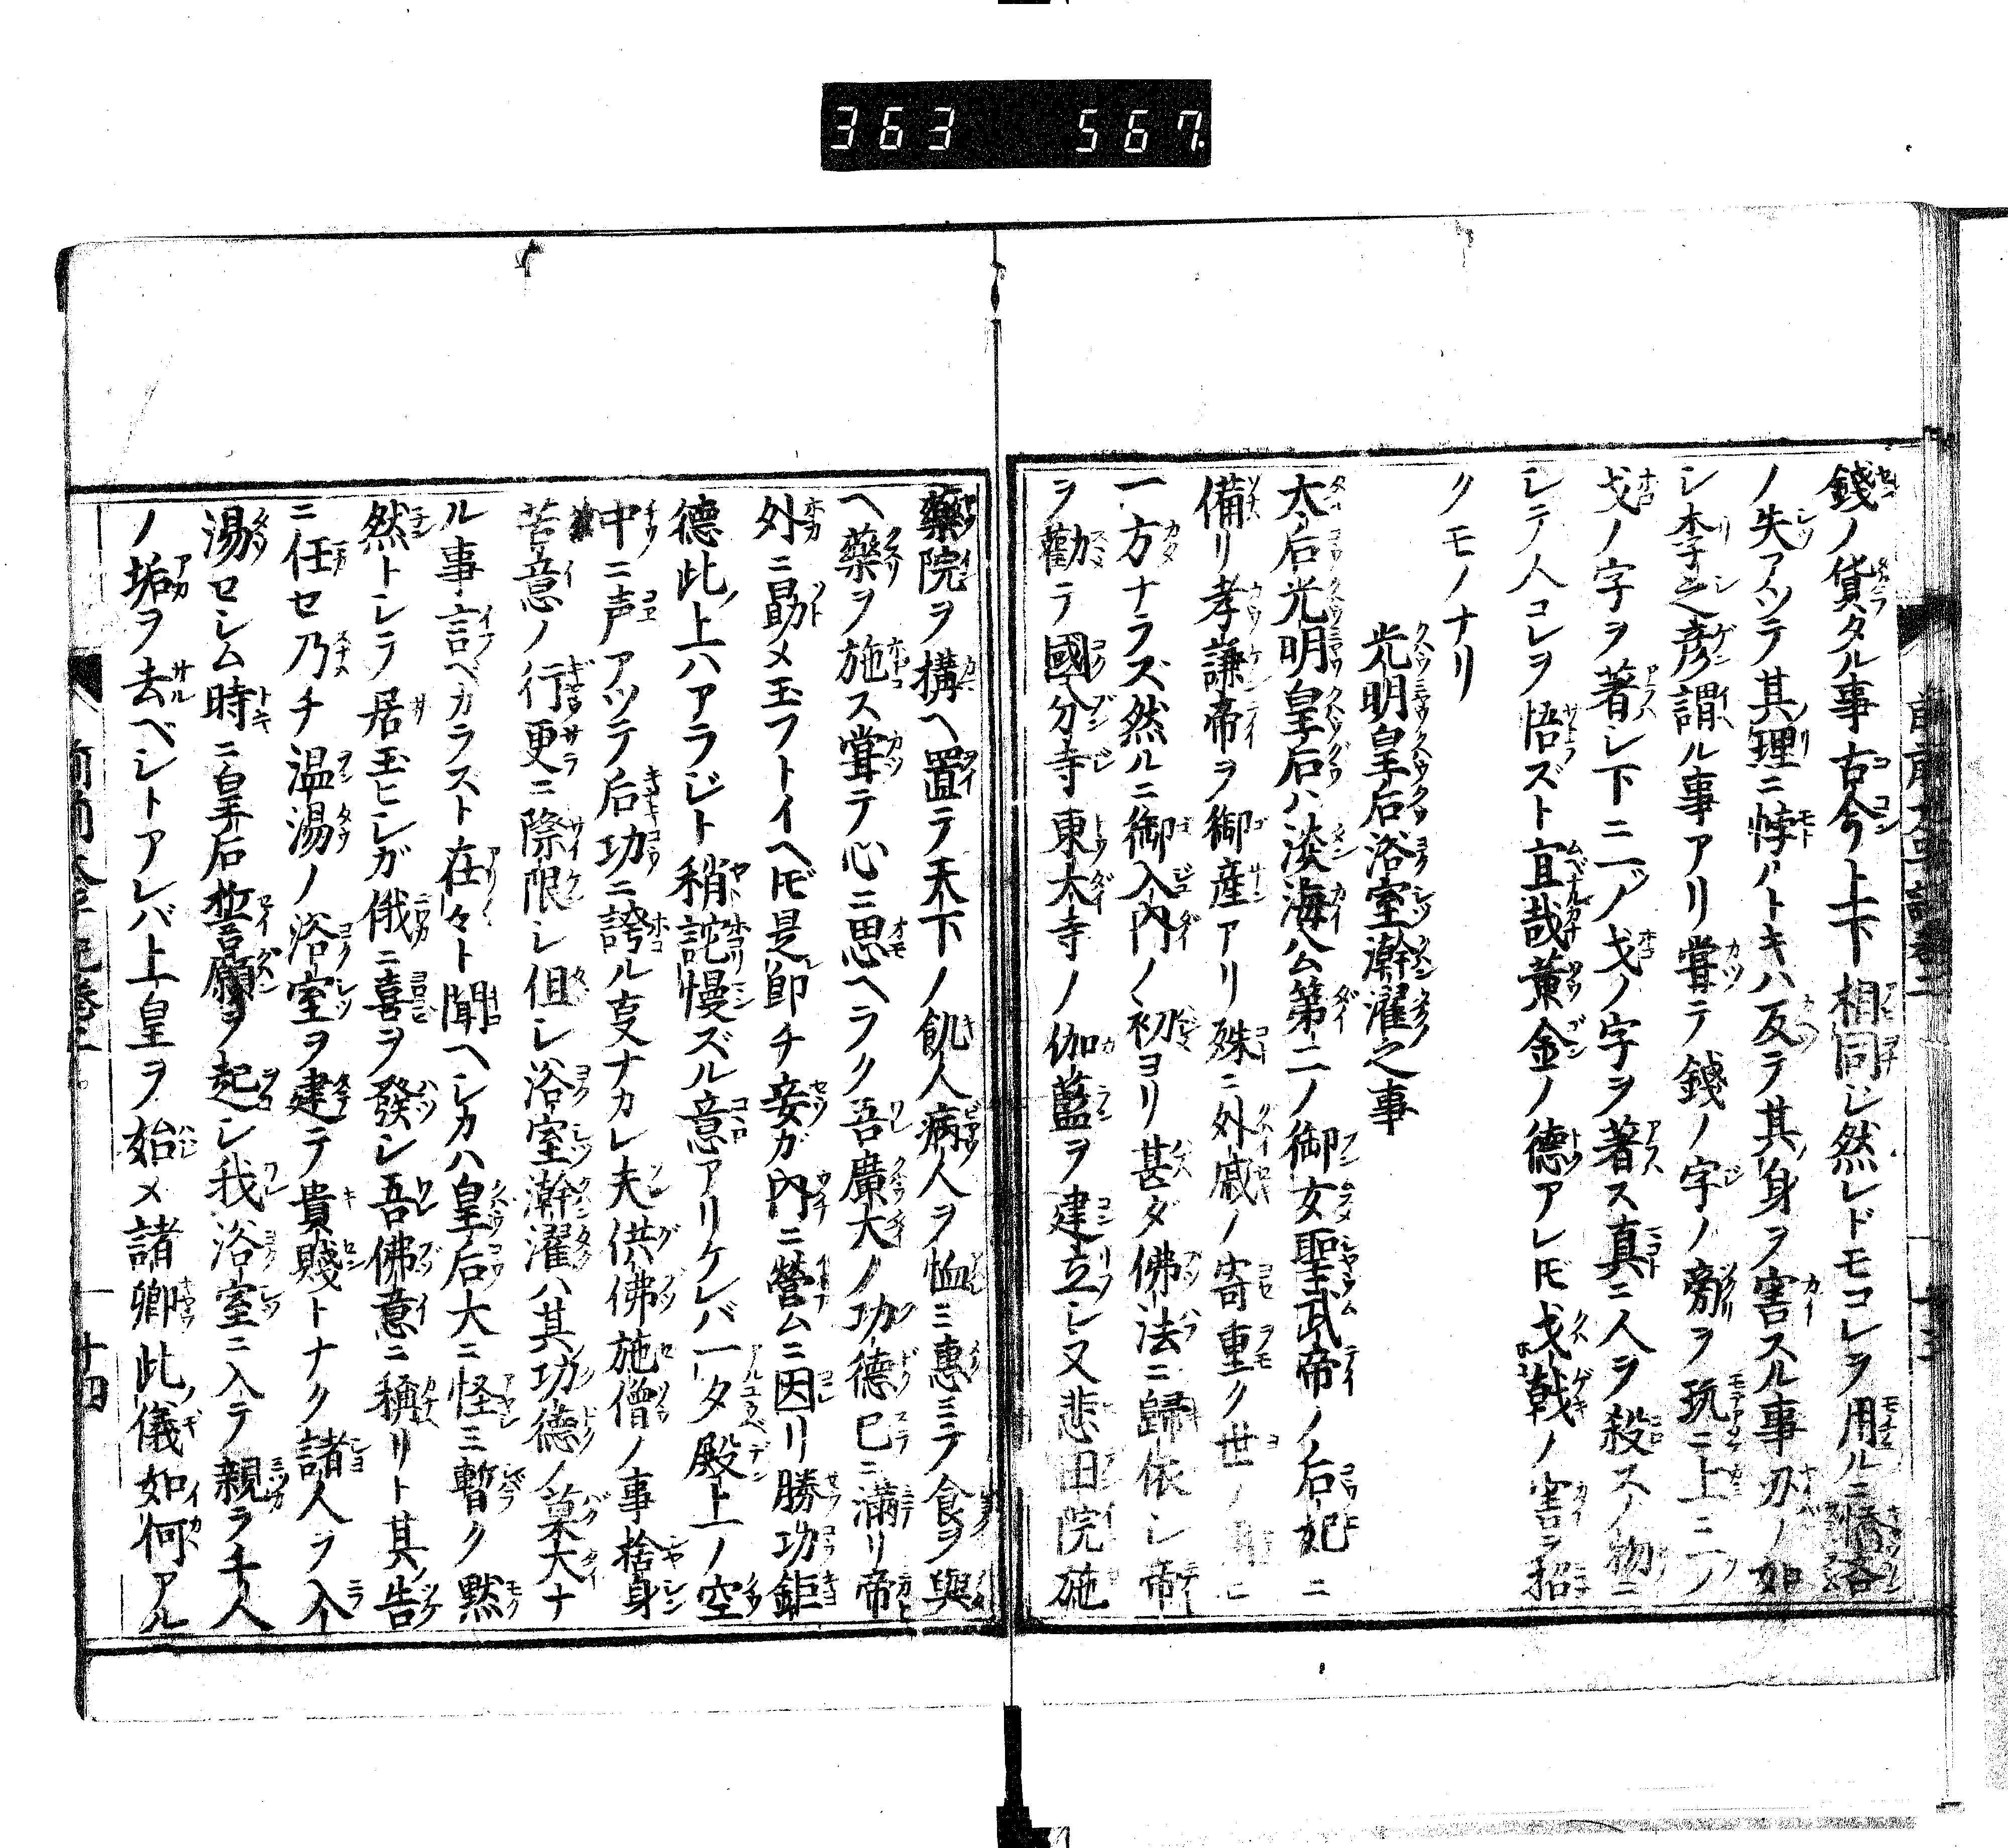 363 567.
錢ノ貨タル事古今ト上下相同レ然レドモコレヲ用ルニ悋吝
ノ失アツテ其理ニ悖トキハ反テ其身ヲ害スル事刃ノ如
シ李之彦謂ル事アリ嘗テ錢ノ字ノ旁ヲ玩ニ上ニ一ノ
戈ノ字ヲ著シ下ニ一ノ戈ノ字ヲ著ス真ニ人ヲ殺スノ物ニ
シテ人コレヲ悟ズト宜哉黄金ノ徳アレ𪜈戈戟ノ害ヲ招
クモノナリ
光明皇后浴室澣濯之事
太后光明皇后ハ淡海公第二ノ御女聖武帝ノ后妃ニ
備リ孝謙帝ヲ御産アリ殊ニ外戚ノ寄重ク世ノ
一方ナラズ然ルニ御入内ノ初ヨリ甚ダ佛法ニ歸依シ帝
ヲ勸テ國分寺東大寺ノ伽藍ヲ建立シ又悲田院施
藥院ヲ構ヘ置テ天下ノ飢人病人ヲ恤ミ惠ミテ食ヲ與
ヘ藥ヲ施ス嘗テ心ニ思ヘラク吾廣大ノ功德已ニ滿リ帝
外ニ勗メ玉フトイヘ𪜈是即チ妾ガ内ニ營ムニ因リ勝功鉅
德此上ハアラジト稍詫慢ズル意アリケレバ一夕殿上ノ空
中ニ声アツテ后功ニ誇ル叓ナカレ夫供佛施僧ノ事捨身
苦意ノ行更ニ際限シ但シ浴室澣濯ハ其功德ノ菓大ナ
ル事言ベカラズト在々ト聞ヘシカハ皇后大ニ怪ミ暫ク黙
然トシテ居玉ヒシガ俄ニ喜ヲ發シ吾佛意ニ稱リト其告
ニ任セ乃チ温湯ノ浴室ヲ建テ貴賤トナク諸人ヲ入
湯セシム時ニ皇后誓願ヲ起シ我浴室ニ入テ親ラ千人
ノ垢ヲ去ベシトアレバ上皇ヲ始メ諸卿此儀如何アル
十四